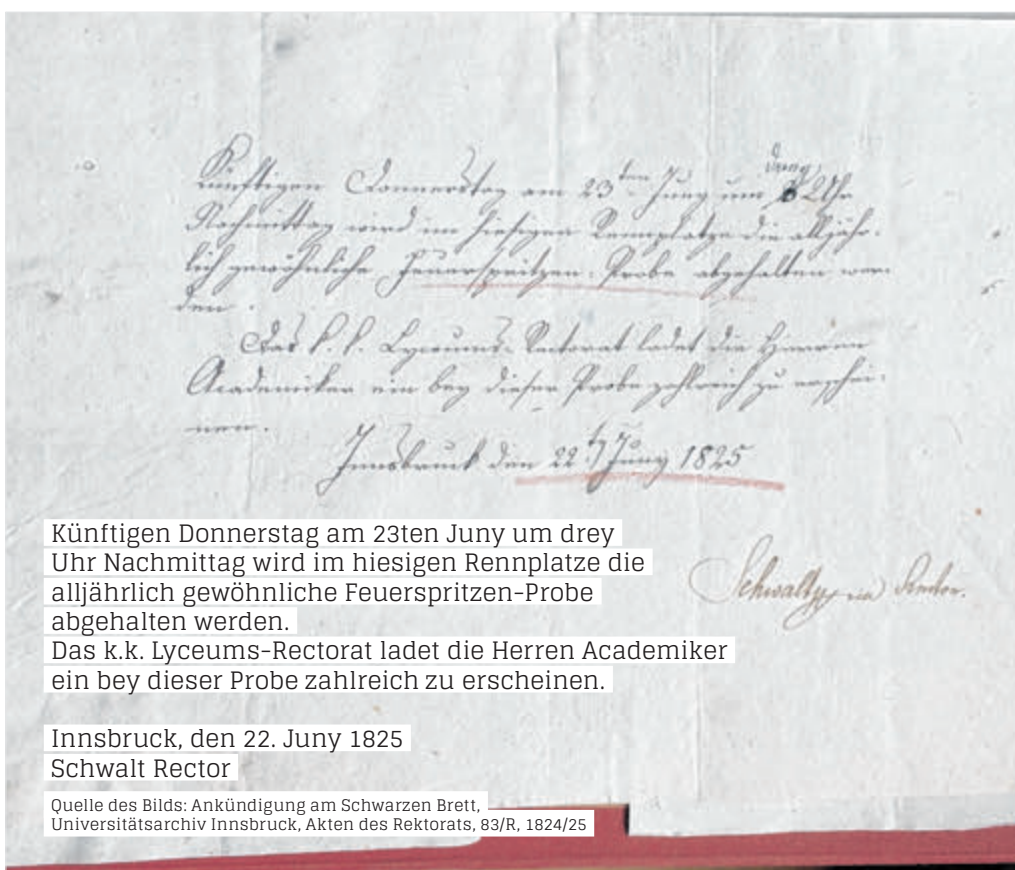 Künftigen Donnerstag am 23ten Juny um drey Uhr
Nachmittag wird im hiesigen Rennplatze die alljähr-
lich gewöhnliche Feuerspritzen-Probe abgehalten wer-
den.
Das k. k. Lyceums-Rectorat ladet die Herren
Academiker ein bey dieser Probe zahlreich zu erschei-
nen.
Innsbruck den 22t Juny 1825
Schwalt Rector.
Künftigen Donnerstag am 23ten Juny um drey
Uhr Nachmittag wird im hiesigen Rennplatze die
alljährlich gewöhnliche Feuerspritzen-Probe
abgehalten werden.
Das k.k. Lyceums-Rectorat ladet die Herren Academiker
ein bey dieser Probe zahlreich zu erscheinen.
Innsbruck, den 22. Juny 1825
Schwalt Rector
Quelle des Bilds: Ankündigung am Schwarzen Brett,
Universitätsarchiv Innsbruck, Akten des Rektorats, 83/R, 1824/25